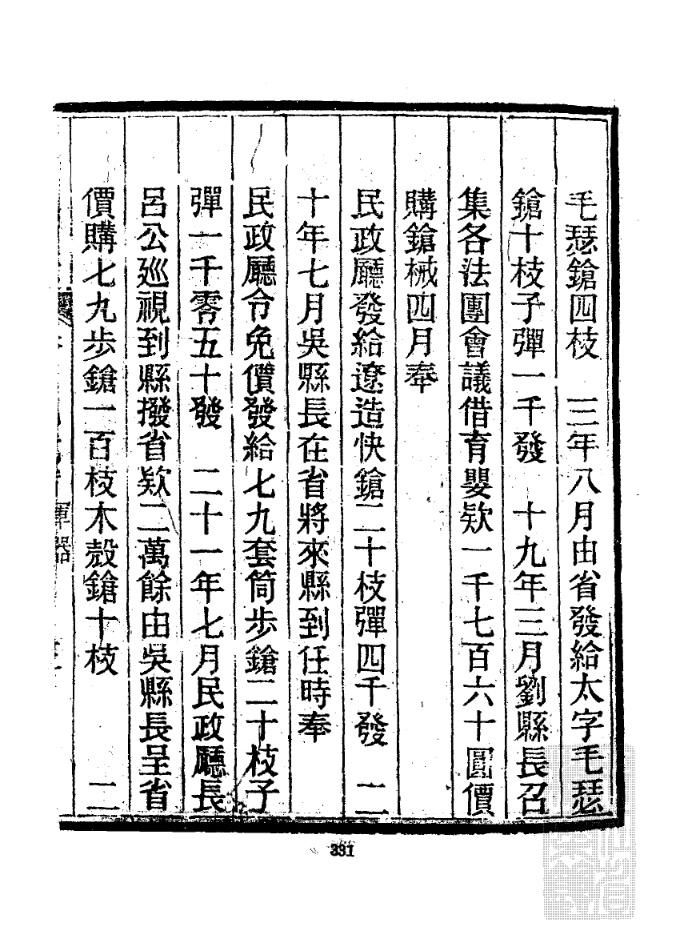 毛瑟鎗四枝　三年八月由省發給太字毛瑟
鎗十枝子彈一千發　十九年三月劉縣長召
集各法團會議借育嬰欵一千七百六十圓價
購鎗械四月奉
民政廳發給遼造快鎗二十枝彈四千發　二
十年七月吳縣長在省將來縣到任時奉
民政廳令免價發給七九套筒步鎗二十枝子
彈一千零五十發　二十一年七月民政廳長
呂公巡視到縣撥省欵二萬餘由吳縣長呈省
價購七九步鎗一百枝木殼鎗十枝　二
軍器
331